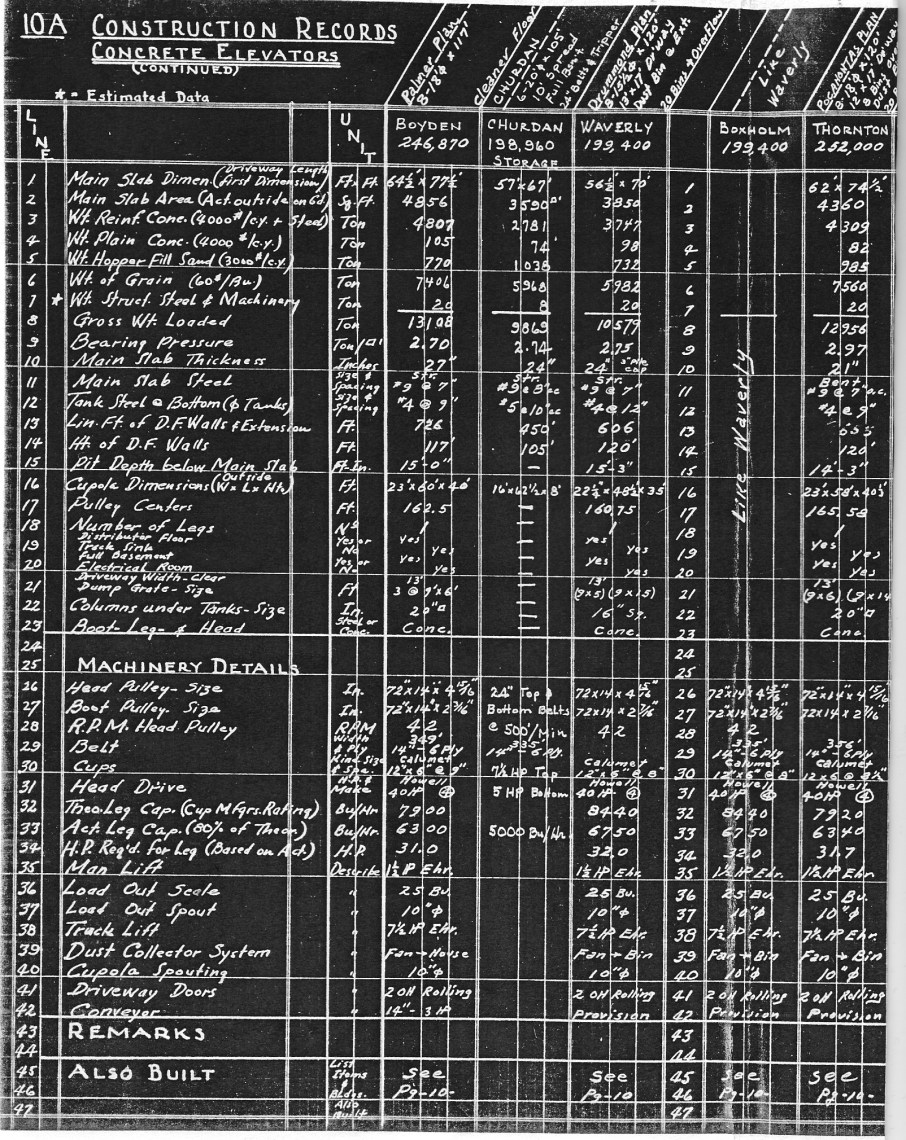 10A CONSTRUCTION RECORDS
CONCRETE ELEVATORS
(CONTINUED)
* = Estimated Data
Palmer Plan
8-18'φ x 117'
Cleaner Floor
CHURDAN
6-20'φ x 105'
10' Spread
Full Bsmt
24" Belts & Tripper
Drummond Plan
13'x17' Dr'way
20 Bins & Overflow
Like
Waverly
POCAHONTAS PLAN
8-18'φ x 120'
LINE UNIT BOYDEN CHURDAN WAVERLY BOXHOLM THORNTON
246,870 198,960 199,400 199,400 252,000
STORAGE
1 Main Slab Dimen. (Driveway Length First Dimension) Ft. x Ft. 64½' x 77½' 57'x67' 56½' x 70' 1 62' x 74½'
2 Main Slab Area (Act. outside on Gd.) Sq. Ft. 4856 3590□' 3850 2 4360
3 Wt. Reinf. Conc. (4000#/c.y. + Steel) Ton 4807 2781 3747 3 4309
4 Wt. Plain Conc. (4000#/c.y.) Ton 105 74 98 4 82
5 Wt. Hopper Fill Sand (3000#/c.y.) Ton 770 1038 732 5 985
6 Wt. of Grain (60#/Bu.) Ton 7406 5968 5982 6 7560
7 * Wt. Struct. Steel & Machinery Ton 20 8 20 7 20
8 Gross Wt. Loaded Ton 13108 9869 10579 8 12956
9 Bearing Pressure Ton/□' 2.70 2.74 2.75 9 2.97
10 Main Slab Thickness Inches 27" 24" 24" 10 21"
11 Main Slab Steel Size & Spacing Str. #9 @ 7" Str. #9 @ 8"oc Str. #9 @ 7" 11 Bent #9 @ 7" o.c.
12 Tank Steel @ Bottom (φ Tanks) Size & Spacing #4 @ 9" #5 @ 10"oc #4 @ 12" 12 #4 @ 9"
13 Lin. Ft. of D.F. Walls & Extension Ft. 726 450' 606 13
14 Ht. of D.F. Walls Ft. 117' 105' 120' 14 120'
15 Pit Depth below Main Slab Ft-In. 15'-0" — 15'-3" 15 14'-3"
16 Cupola Dimensions (Outside W x L x Ht.) Ft. 23'x60'x40' 16'x62½'x8' 22½'x48½'x35' 16 23'x58'x40½'
17 Pulley Centers Ft. 162.5 — 160.75 Like Waverly 17 165.58
18 Number of Legs No. 1 — 1 18 1
19 Distributor Floor Track Sink Yes or No Yes Yes — Yes Yes 19 Yes Yes
20 Full Basement Electrical Room Yes or No Yes Yes — Yes Yes 20 Yes Yes
21 Driveway Width-Clear Dump Grate-Size Ft 13' 3 @ 9'x6' — 13' (9x5) (9x15) 21 13' (9x6) (9x14
22 Columns under Tanks-Size In. 20"□ — 16" Sq. 22 20"□
23 Boot-Leg- & Head Steel or Conc. Conc. — Conc. 23 Conc.
24 24
25 MACHINERY DETAILS 25
26 Head Pulley-Size In. 72"x14"x4 15/16" 24" Top & 72x14x4 15/16" 26 72x14x4 15/16" 72"x14"x4 15/16"
27 Boot Pulley-Size In. 72"x14"x2 7/16" Bottom Belts 72x14x2 7/16" 27 72x14x2 7/16" 72x14x2 7/16"
28 R.P.M. Head Pulley RPM 42 @ 500'/Min 42 28 42
29 Belt Width & Ply 349' 14"-6 Ply 335' 14"-6 Ply. 29 335' 14"-6 Ply 356' 14"-6 Ply
30 Cups Kind Size & Spc. Calumet 12"x6" @ 9" 7½ HP Top Calumet 12"x6" @ 8" 30 Calumet 12"x6" @ 8" Calumet 12x6 @ 8½"
31 Head Drive H.P. & Make Howell 40 HP ④ 5 HP Bottom Howell 40 HP ④ 31 Howell 40 HP ④ Howell 40 HP ④
32 Theo. Leg Cap. (Cup Mfgrs. Rating) Bu/Hr 7900 8440 32 8440 7920
33 Act. Leg Cap. (80% of Theor.) Bu/Hr. 6300 5000 Bu/Hr. 6750 33 6750 6340
34 H.P. Req'd. for Leg (Based on Act.) H.P. 31.0 32.0 34 32.0 31.7
35 Man Lift Describe 1½ HP Ehr. 1½ HP Ehr. 35 1½ HP Ehr. 1½ HP Ehr.
36 Load Out Scale " 25 Bu. 25 Bu. 36 25 Bu. 25 Bu.
37 Load Out Spout " 10"φ 10"φ 37 10"φ 10"φ
38 Truck Lift " 7½ HP Ehr. 7½ HP Ehr. 38 7½ HP Ehr. 7½ HP Ehr.
39 Dust Collector System " Fan→House Fan→Bin 39 Fan→Bin Fan→Bin
40 Cupola Spouting " 10"φ 10"φ 40 10"φ 10"φ
41 Driveway Doors " 2 OH Rolling 2 OH Rolling 41 2 OH Rolling 2 OH Rolling
42 Conveyor " 14"-3 HP Provision 42 Provision Provision
43 REMARKS 43
44 44
45 ALSO BUILT List Items & See See 45 See See
46 Bldgs. Pg-10- Pg-10 46 Pg-10- Pg-10-
47 Also Built 47